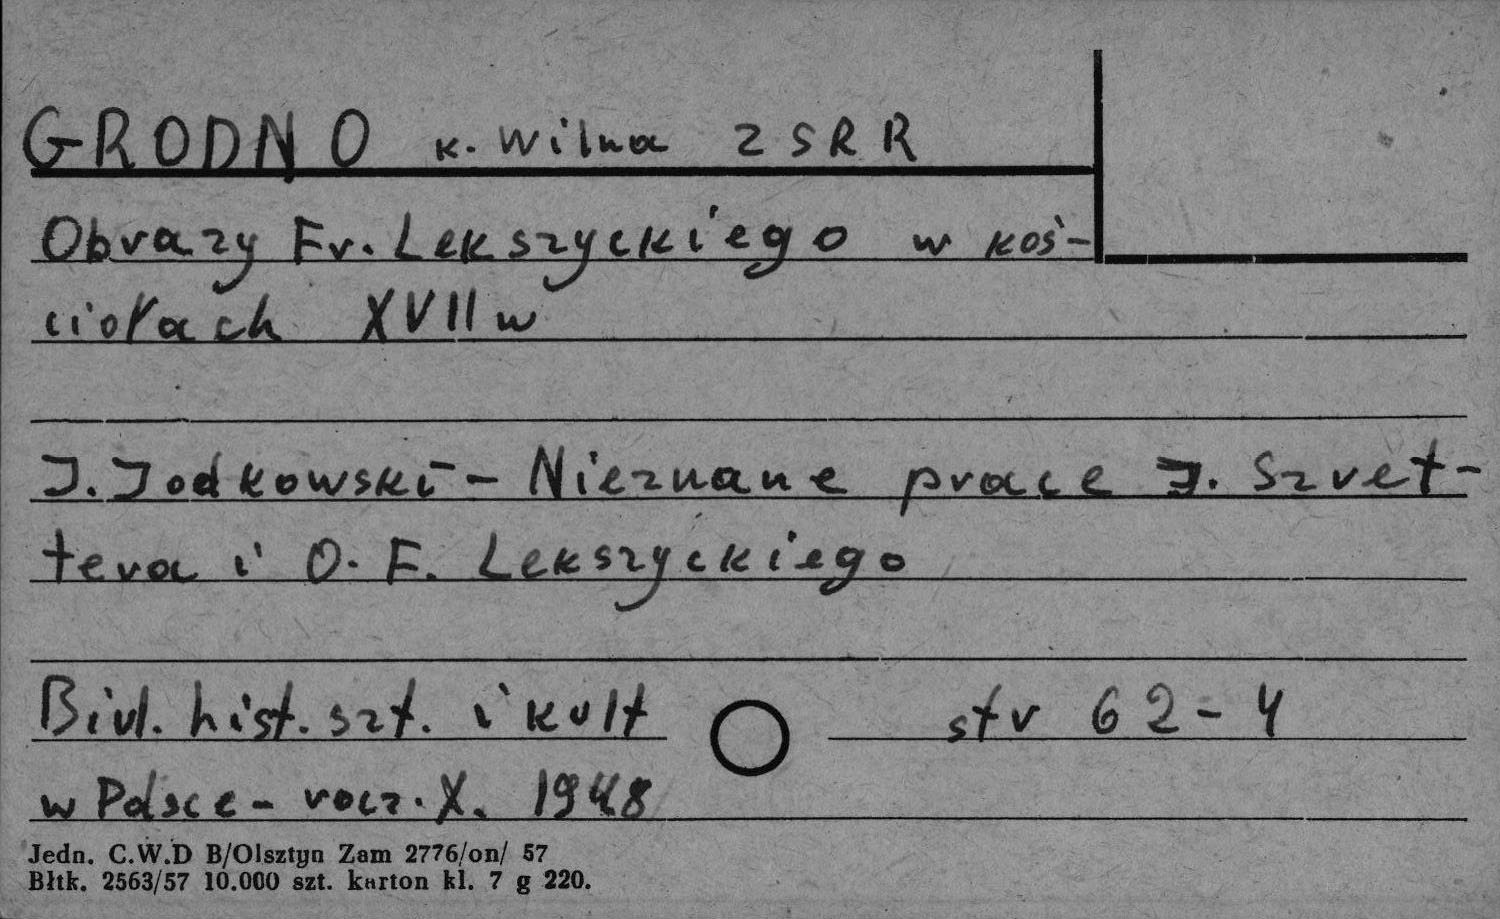 GRODNO k. Wilna ZSRR
Obrazy Fr. Lekszyckiego w koś-
ciołach XVII w
J. Jodkowski - Nieznane prace J. Szret-
tera i O. F. Lekszyckiego
Biul. hist. szt. i kult str 62-4
w Polsce - rocz. X. 1948
Jedn. C.W.D B/Olsztyn Zam 2776/on/ 57
Błtk. 2563/57 10.000 szt. karton kl. 7 g 220.